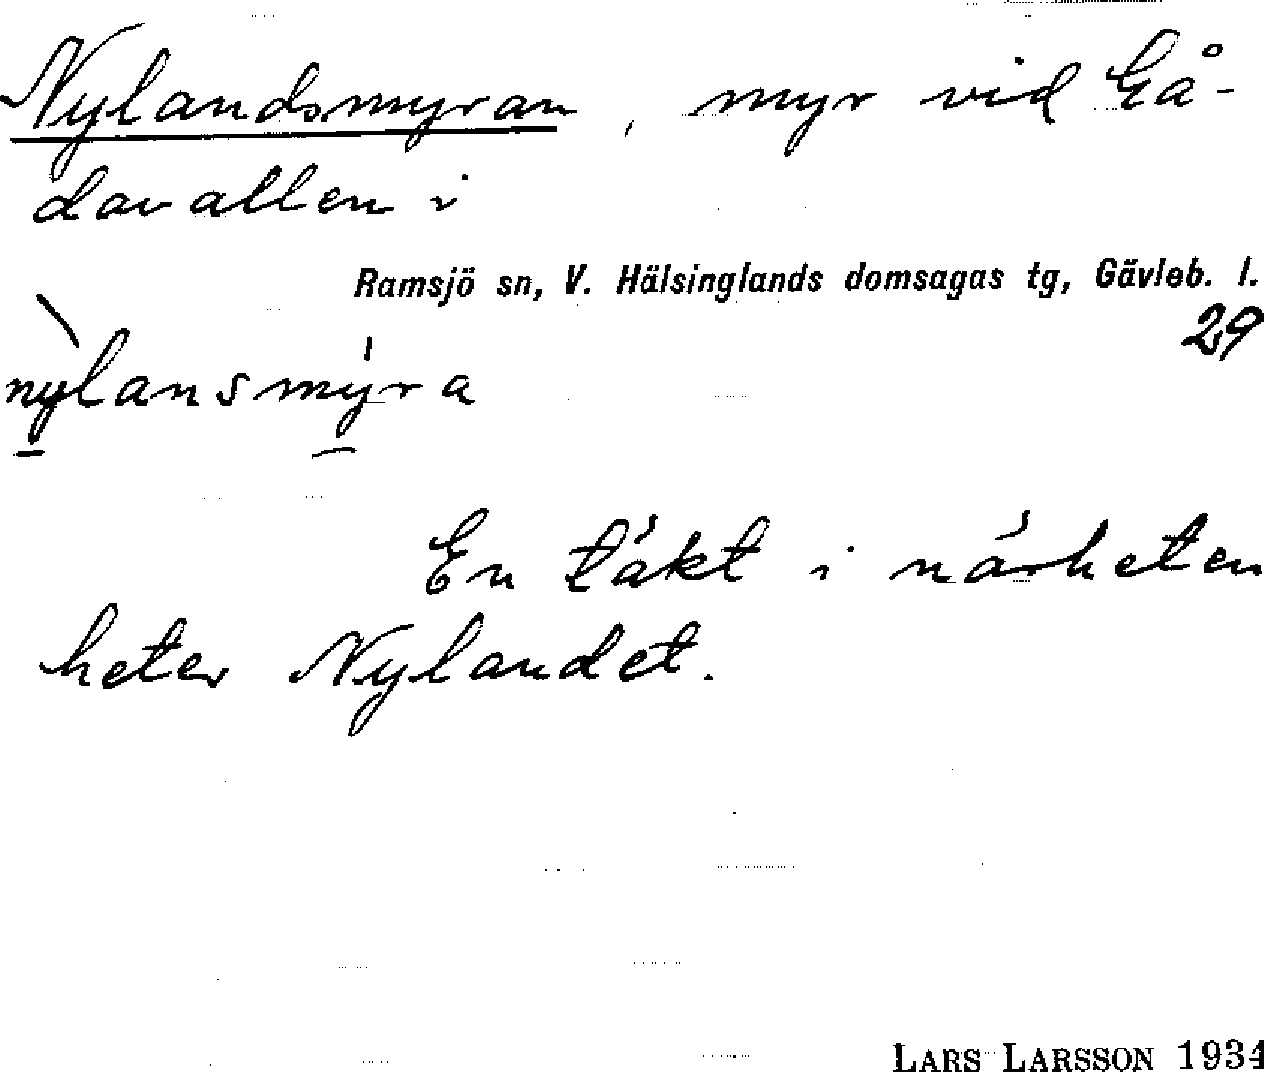 Nylandsmyran, myr vid Gå-
davallen i
Ramsjö sn, V. Hälsinglands domsagas tg, Gävleb. l.
29
nylansmyra
En täkt i närheten
heter Nylandet.
LARS LARSSON 1934